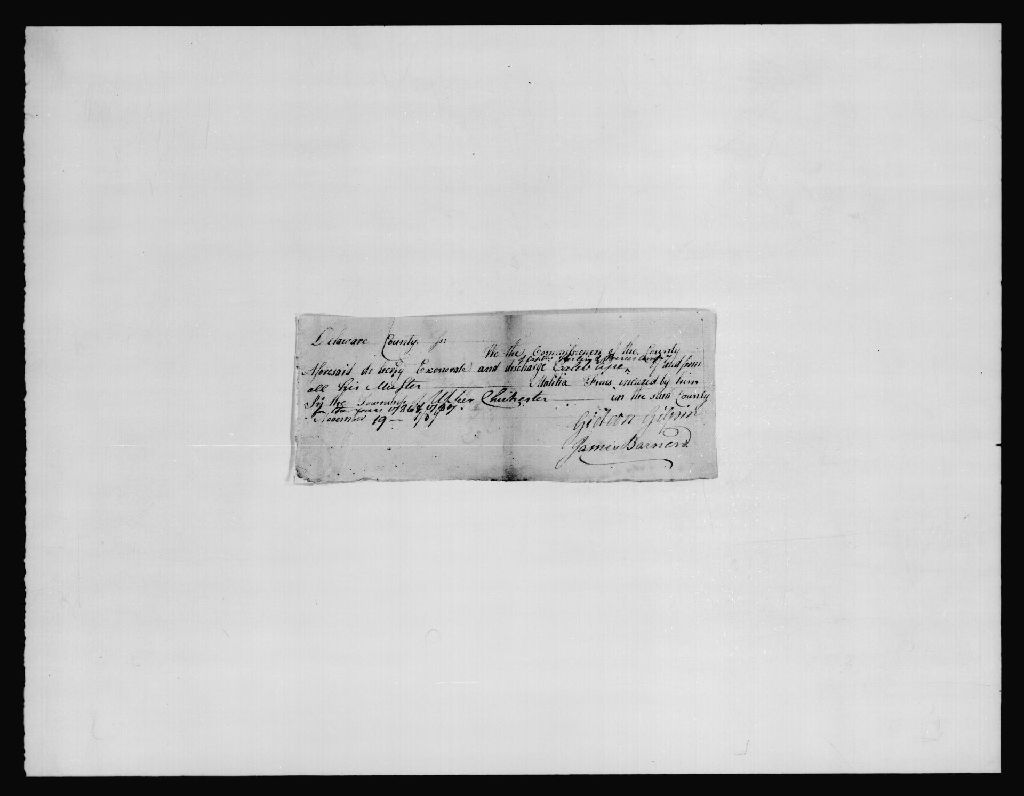 Delaware County ss
We the Commissioners of the County
Aforesaid do hereby Exonerate and discharge Caleb of and from
all his Militia Fines incured by him
In the Township of Upper Chichester in the said County
for the years 1786 & 1787
November 19 1787
Gideon Gilpin
James Barnard